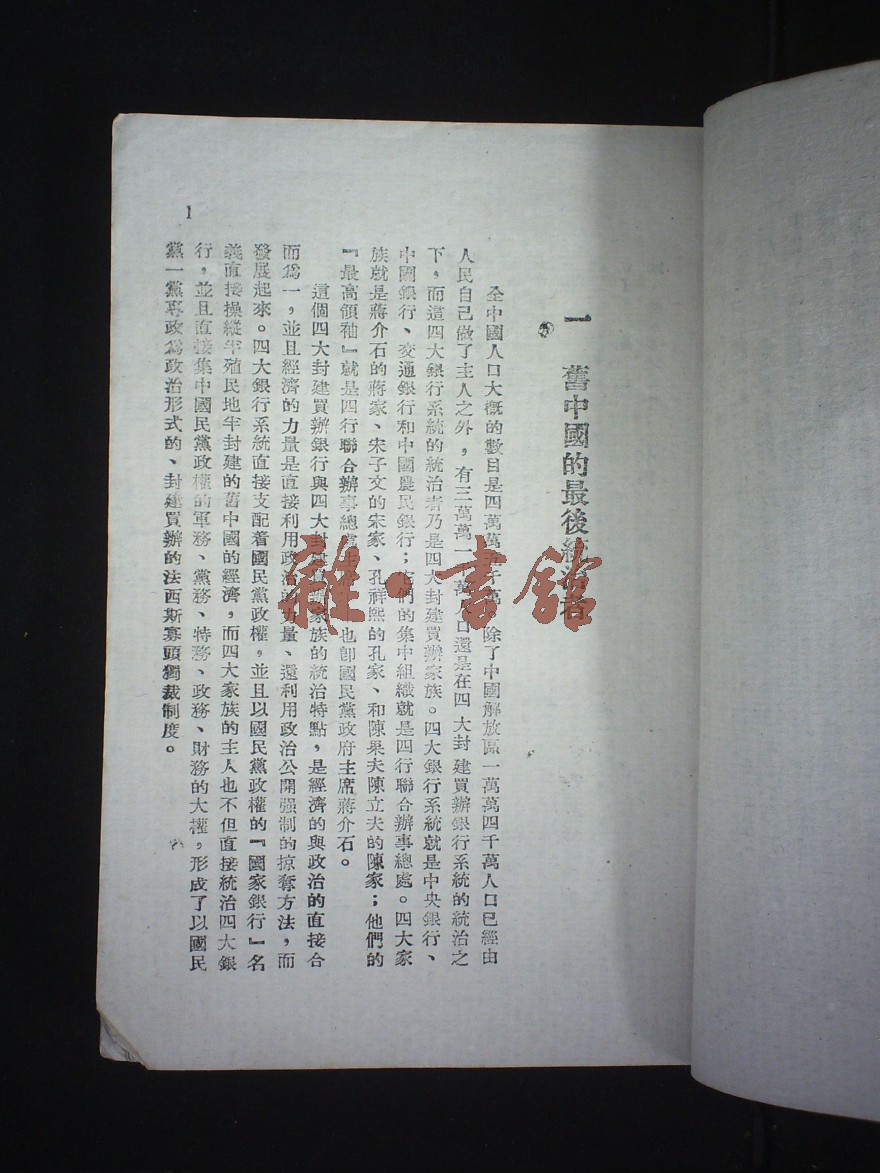 一 舊中國的最後統治者
全中國人口大概的數目是四萬萬五千萬，除了中國解放區一萬萬四千萬人口已經由
人民自己做了主人之外，有三萬萬一千萬人口還是在四大封建買辦銀行系統的統治之
下，而這四大銀行系統的統治者乃是四大封建買辦家族。四大銀行系統就是中央銀行、
中國銀行、交通銀行和中國農民銀行；他們的集中組織就是四行聯合辦事總處。四大家
族就是蔣介石的蔣家、宋子文的宋家、孔祥熙的孔家、和陳果夫陳立夫的陳家；他們的
『最高領袖』就是四行聯合辦事總處 也卽國民黨政府主席蔣介石。
這個四大封建買辦銀行與四大封建買辦家族的統治特點，是經濟的與政治的直接合
而爲一，並且經濟的力量是直接利用政治的力量、還利用政治公開强制的掠奪方法，而
發展起來。四大銀行系統直接支配着國民黨政權，並且以國民黨政權的『國家銀行』名
義直接操縱半殖民地半封建的舊中國的經濟，而四大家族的主人也不但直接統治四大銀
行，並且直接集中國民黨政權的軍務、黨務、特務、政務、財務的大權，形成了以國民
黨一黨專政爲政治形式的、封建買辦的法西斯寡頭獨裁制度。
1
雜·書館